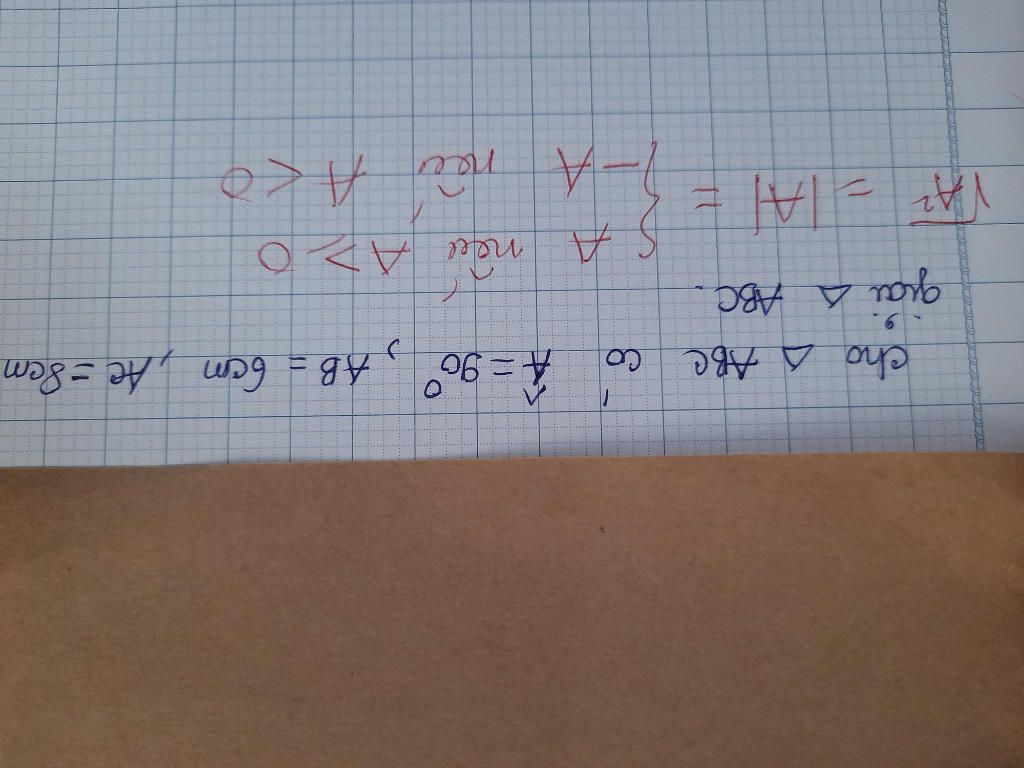 cho Δ ABC có Â = 90⁰, AB = 6cm, AC = 8cm
giải Δ ABC.
√A² = |A| = { A nếu A ≥ 0
{ -A nếu A < 0